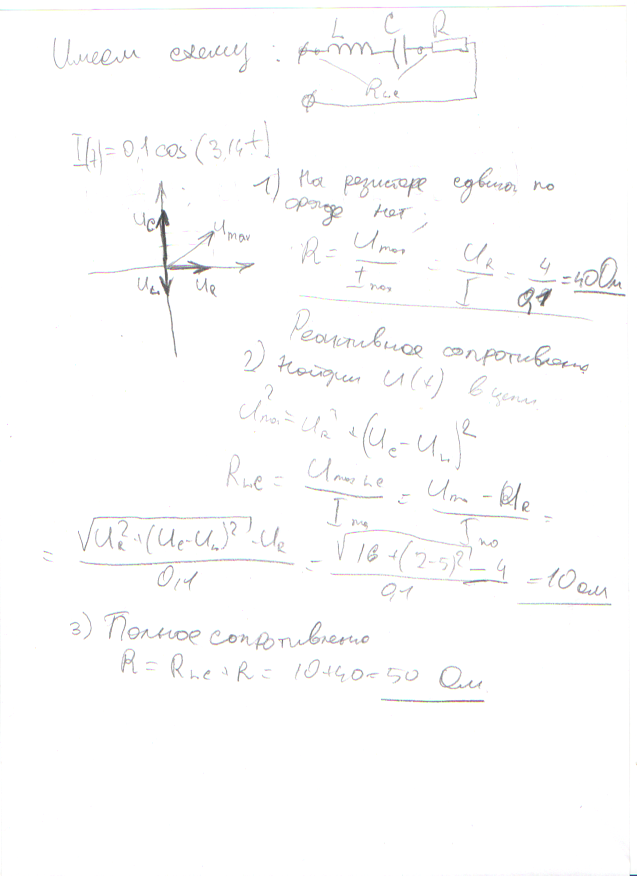 Имеем схему :
L C R
R LC
I(t)=0,1 cos (3,14t)
1) На резисторе сдвига по
фазе нет;
U C
U max
U L U R
R = U max / I max = U R / I = 4 / 0,1 = 40 Ом
Реактивное сопротивление
2) Найдем U(t) в цепи
U²max = U R² + (U C - U L)²
R LC = U max LC / I max = U max - U R / I max =
= √(U R² + (U C - U L)²) - U R / 0,1 = √(16 + (2-5)²) - 4 / 0,1 = 10 ом
3) Полное сопротивлено
R = R LC + R = 10+40=50 Ом